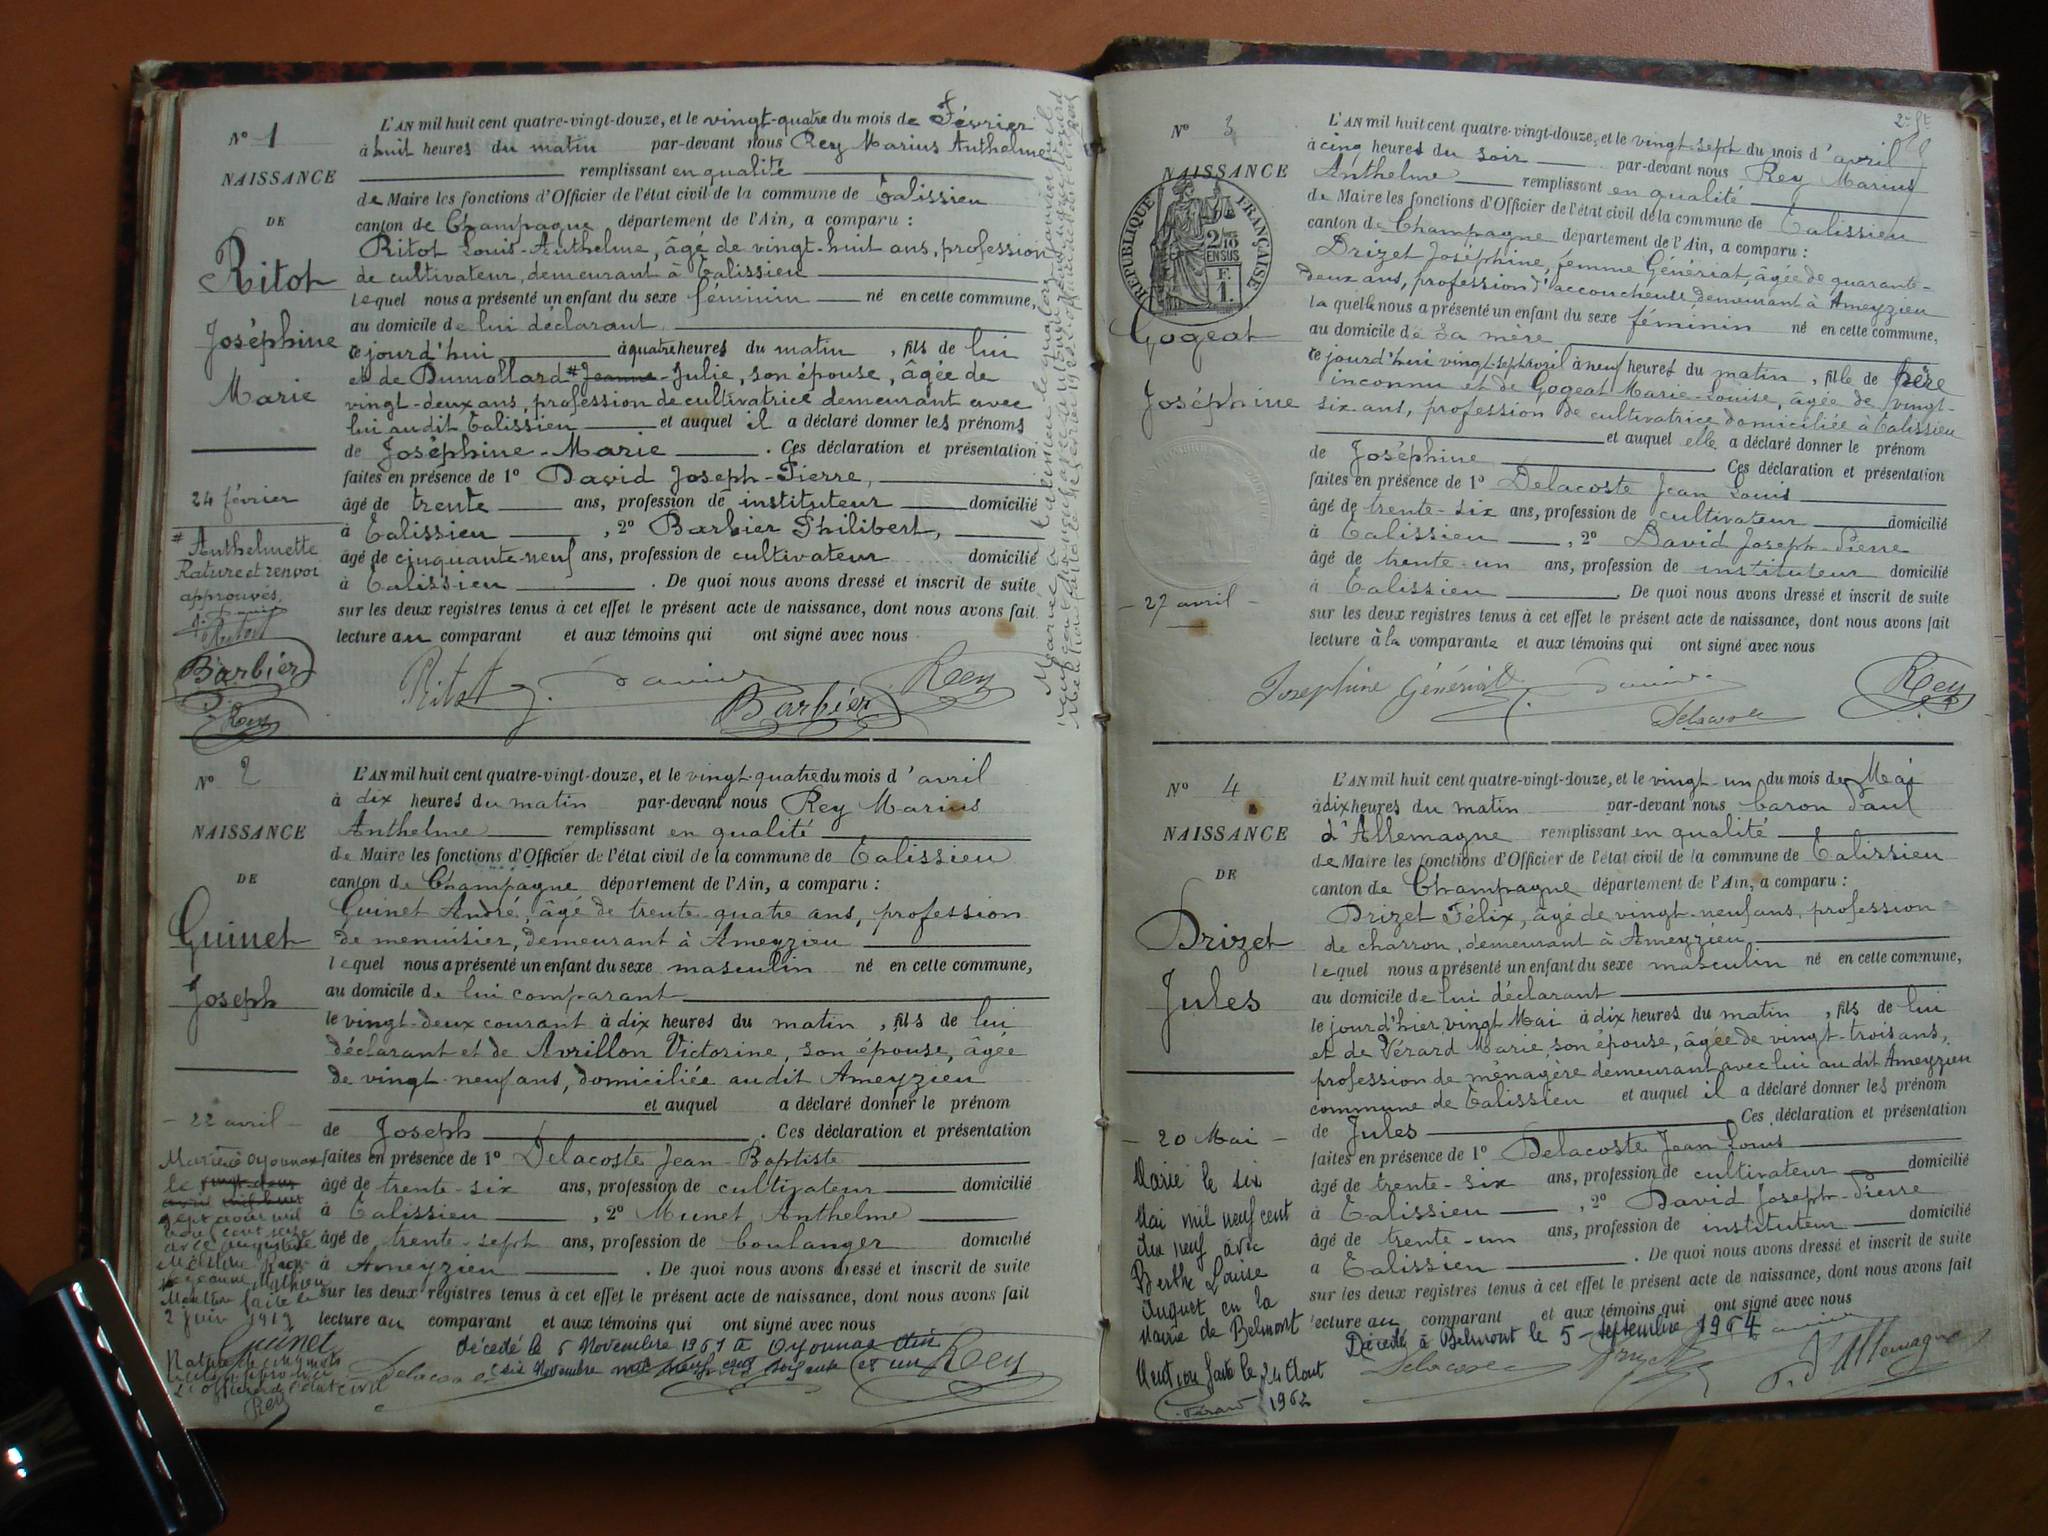 N° 1
NAISSANCE
DE
Ritot
Joséphine
Marie
24 février
# Anthelmette
Rature et renvoi
approuvés.
Ritot
Barbier
Rey
L'AN mil huit cent quatre-vingt-douze, et le vingt-quatre du mois de Février
à huit heures du matin par-devant nous Rey Marius Anthelme
remplissant en qualité
de Maire les fonctions d'Officier de l'état civil de la commune de Talissieu
canton de Champagne département de l'Ain, a comparu :
Ritot Louis-Anthelme, âgé de vingt-huit ans, profession
de cultivateur, demeurant à Talissieu
lequel nous a présenté un enfant du sexe féminin né en cette commune,
au domicile de lui déclarant
ce jourd'hui à quatre heures du matin, fils de lui
et de Dumollard # Jeanne-Julie, son épouse, âgée de
vingt-deux ans, profession de cultivatrice demeurant avec
lui au dit Talissieu et auquel il a déclaré donner les prénoms
de Joséphine-Marie. Ces déclaration et présentation
faites en présence de 1° David Joseph-Pierre,
âgé de trente ans, profession de instituteur domicilié
à Talissieu, 2° Barbier Philibert,
âgé de cinquante-neuf ans, profession de cultivateur domicilié
à Talissieu. De quoi nous avons dressé et inscrit de suite
sur les deux registres tenus à cet effet le présent acte de naissance, dont nous avons fait
lecture au comparant et aux témoins qui ont signé avec nous
Ritot J. David Barbier Rey
N° 2
NAISSANCE
DE
Guinet
Joseph
22 avril
Marié à Oyonnax
le vingt-deux
avril mil huit
sept août mil
neuf cent seize
avec
Mathieu
Mention faite le
2 juin 1919
L'AN mil huit cent quatre-vingt-douze, et le vingt-quatre du mois d'avril
à dix heures du matin par-devant nous Rey Marius
Anthelme remplissant en qualité
de Maire les fonctions d'Officier de l'état civil de la commune de Talissieu
canton de Champagne département de l'Ain, a comparu :
Guinet André, âgé de trente-quatre ans, profession
de menuisier, demeurant à Ameyzieu
lequel nous a présenté un enfant du sexe masculin né en cette commune,
au domicile de lui comparant
le vingt-deux courant à dix heures du matin, fils de lui
déclarant et de Avrillon Victorine, son épouse, âgée
de vingt-neuf ans, domiciliée au dit Ameyzieu
et auquel a déclaré donner le prénom
de Joseph. Ces déclaration et présentation
faites en présence de 1° Delacoste Jean-Baptiste
âgé de trente-six ans, profession de cultivateur domicilié
à Talissieu, 2° Munet Anthelme
âgé de trente-sept ans, profession de boulanger domicilié
à Ameyzieu. De quoi nous avons dressé et inscrit de suite
sur les deux registres tenus à cet effet le présent acte de naissance, dont nous avons fait
lecture au comparant et aux témoins qui ont signé avec nous
Décédé le 6 Novembre 1961 à Oyonnax Ain
(six Novembre mil neuf cent soixante et un)
Guinet Delacoste Rey
2e ft
N° 3
NAISSANCE
RÉPUBLIQUE FRANÇAISE
2/10 EN SUS
F. 1.
Gogeat
Joséphine
- 27 avril -
L'AN mil huit cent quatre-vingt-douze, et le vingt-sept du mois d'avril
à cinq heures du soir par-devant nous Rey Marius
Anthelme remplissant en qualité
de Maire les fonctions d'Officier de l'état civil de la commune de Talissieu
canton de Champagne département de l'Ain, a comparu :
Drizet Joséphine, femme Génériat, âgée de quarante-
deux ans, profession d'accoucheuse, demeurant à Ameyzieu
laquelle nous a présenté un enfant du sexe féminin né en cette commune,
au domicile de sa mère
ce jourd'hui vingt-sept avril à neuf heures du matin, fille de père
inconnu et de Gogeat Marie-Louise, âgée de vingt-
six ans, profession de cultivatrice domiciliée à Talissieu
et auquel elle a déclaré donner le prénom
de Joséphine. Ces déclaration et présentation
faites en présence de 1° Delacoste Jean Louis
âgé de trente-six ans, profession de cultivateur domicilié
à Talissieu, 2° David Joseph-Pierre
âgé de trente-un ans, profession de instituteur domicilié
à Talissieu. De quoi nous avons dressé et inscrit de suite
sur les deux registres tenus à cet effet le présent acte de naissance, dont nous avons fait
lecture à la comparante et aux témoins qui ont signé avec nous
Joséphine Génériat J. David Delacoste Rey
N° 4
NAISSANCE
DE
Drizet
Jules
- 20 Mai -
Marié le six
Mai mil neuf cent
dix neuf avec
Berthe Louise
Auguet en la
Mairie de Belmont
Mention faite le 24 Aout
1962
L'AN mil huit cent quatre-vingt-douze, et le vingt-un du mois de Mai
à dix heures du matin par-devant nous baron Paul
d'Allemagne remplissant en qualité
de Maire les fonctions d'Officier de l'état civil de la commune de Talissieu
canton de Champagne département de l'Ain, a comparu :
Drizet Félix, âgé de vingt-neuf ans, profession
de charron, demeurant à Ameyzieu
lequel nous a présenté un enfant du sexe masculin né en cette commune,
au domicile de lui déclarant
le jour d'hier, vingt Mai à dix heures du matin, fils de lui
et de Vérard Marie, son épouse, âgée de vingt-trois ans,
profession de ménagère demeurant avec lui au dit Ameyzieu
commune de Talissieu et auquel il a déclaré donner les prénom
de Jules. Ces déclaration et présentation
faites en présence de 1° Delacoste Jean Louis
âgé de trente-six ans, profession de cultivateur domicilié
à Talissieu, 2° David Joseph-Pierre
âgé de trente-un ans, profession de instituteur domicilié
à Talissieu. De quoi nous avons dressé et inscrit de suite
sur les deux registres tenus à cet effet le présent acte de naissance, dont nous avons fait
lecture au comparant et aux témoins qui ont signé avec nous
Décédé à Belmont le 5 septembre 1964
Delacoste Drizet P. d'Allemagne